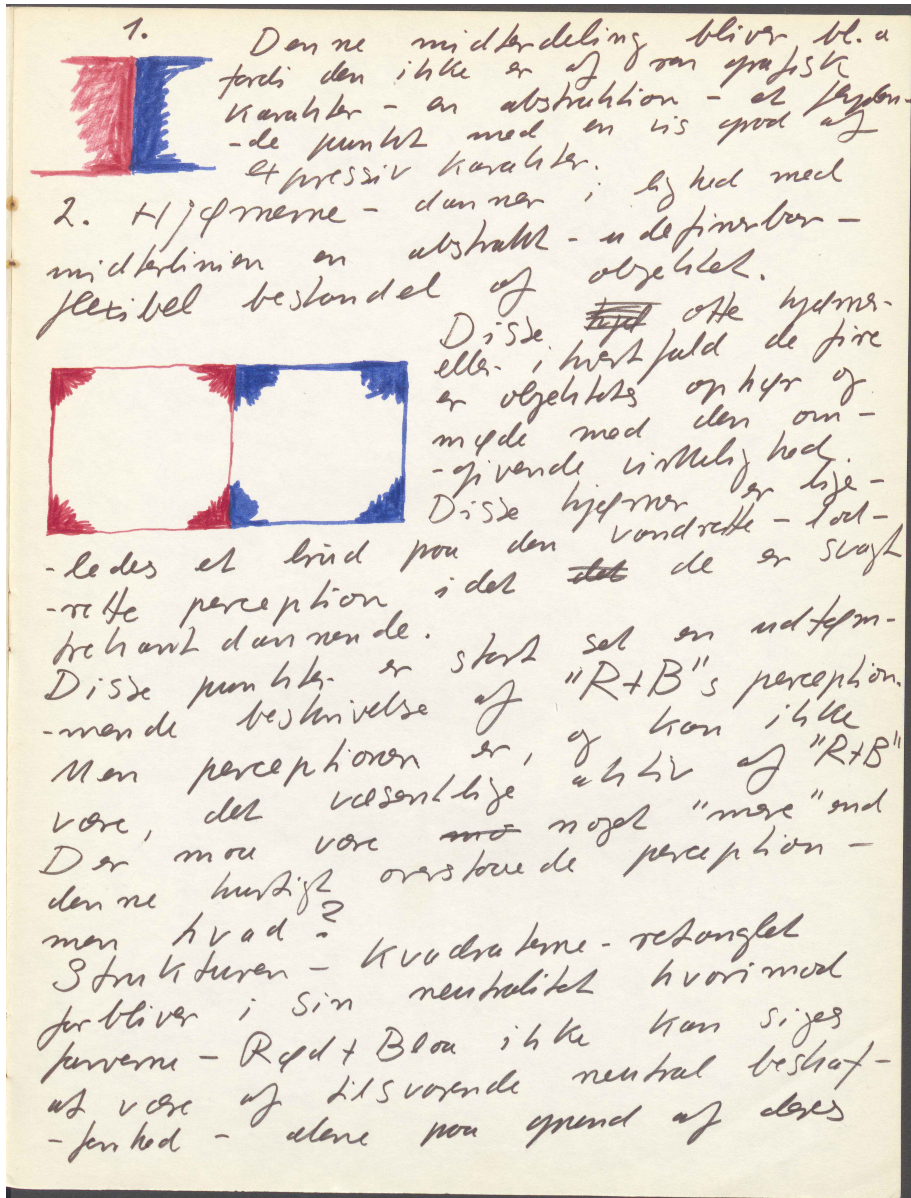 1.
Denne midterdeling bliver bl.a
fordi den ikke er af ren grafisk
karakter - en abstraktion - et
-de punkt med en vis grad af
expressiv karakter.
2. Hjørnerne - danner i lighed med
midterlinien en abstrakt - udefinerbar -
flexibel bestandel af objektet.
Disse otte hjørner
eller i hvert fald de fire
er objektets ophør og
møde med den om-
-givende virkelighed.
Disse hjørner er lige-
-ledes et brud paa den vandrette - lod-
-rette perception idet det de er svagt
trekant dannende.
Disse punkter er stort set en udtøm-
-mende beskrivelse af "R+B"s perception.
Men perceptionen er, og kan ikke
være, det væsentlige aktiv af "R+B"
Der maa være noget "mere" end
denne hurtigt overstaaede perception -
men hvad?
Strukturen - kvadraterne - retanglet
forbliver i sin neutralitet hvorimod
farverne - Rød + Blaa ikke kan siges
at være af tilsvarende neutral beskaf-
-fenhed - alene paa grund af deres